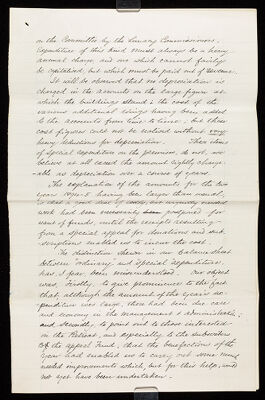 on the Committee by the Lunacy Commissioners.
Expenditure of this kind must always be a heavy
annual charge, and one which cannot fairly
be capitalised, but which must be paid out of Revenue.
It will be observed that no depreciation is
charged in the accounts on the large figure at
which the buildings stand; the cost of the
various additional things having been added
to the accounts from time to time; but these
cost figures could not be realised without very
heavy reductions for depreciation. These items
of special expenditure on the premises, do not, we
believe at all exceed the amount rightly charge-
-able as depreciation over a course of years.
The explanation of the amounts for the two
years being larger than usual,
is that a good deal of
work had been necessarily postponed for
want of funds, until the results accruing
from a special appeal for donations and sub-
scriptions enabled us to incur the cost.
The distinction drawn in our Balance Sheet
between "ordinary" and "special" expenditure
has I fear been misunderstood. Our object
was, firstly, to give prominence to the fact
that although the amount of the year's ex-
penditure was large, there had been due care
and economy in the management & administration;
and secondly, to point out to those interested
in the Retreat, and especially to the subscribers
of the appeal Fund, that the benefactions of the
year had enabled us to carry out some much
needed improvements which, but for this help, could
not have been undertaken.